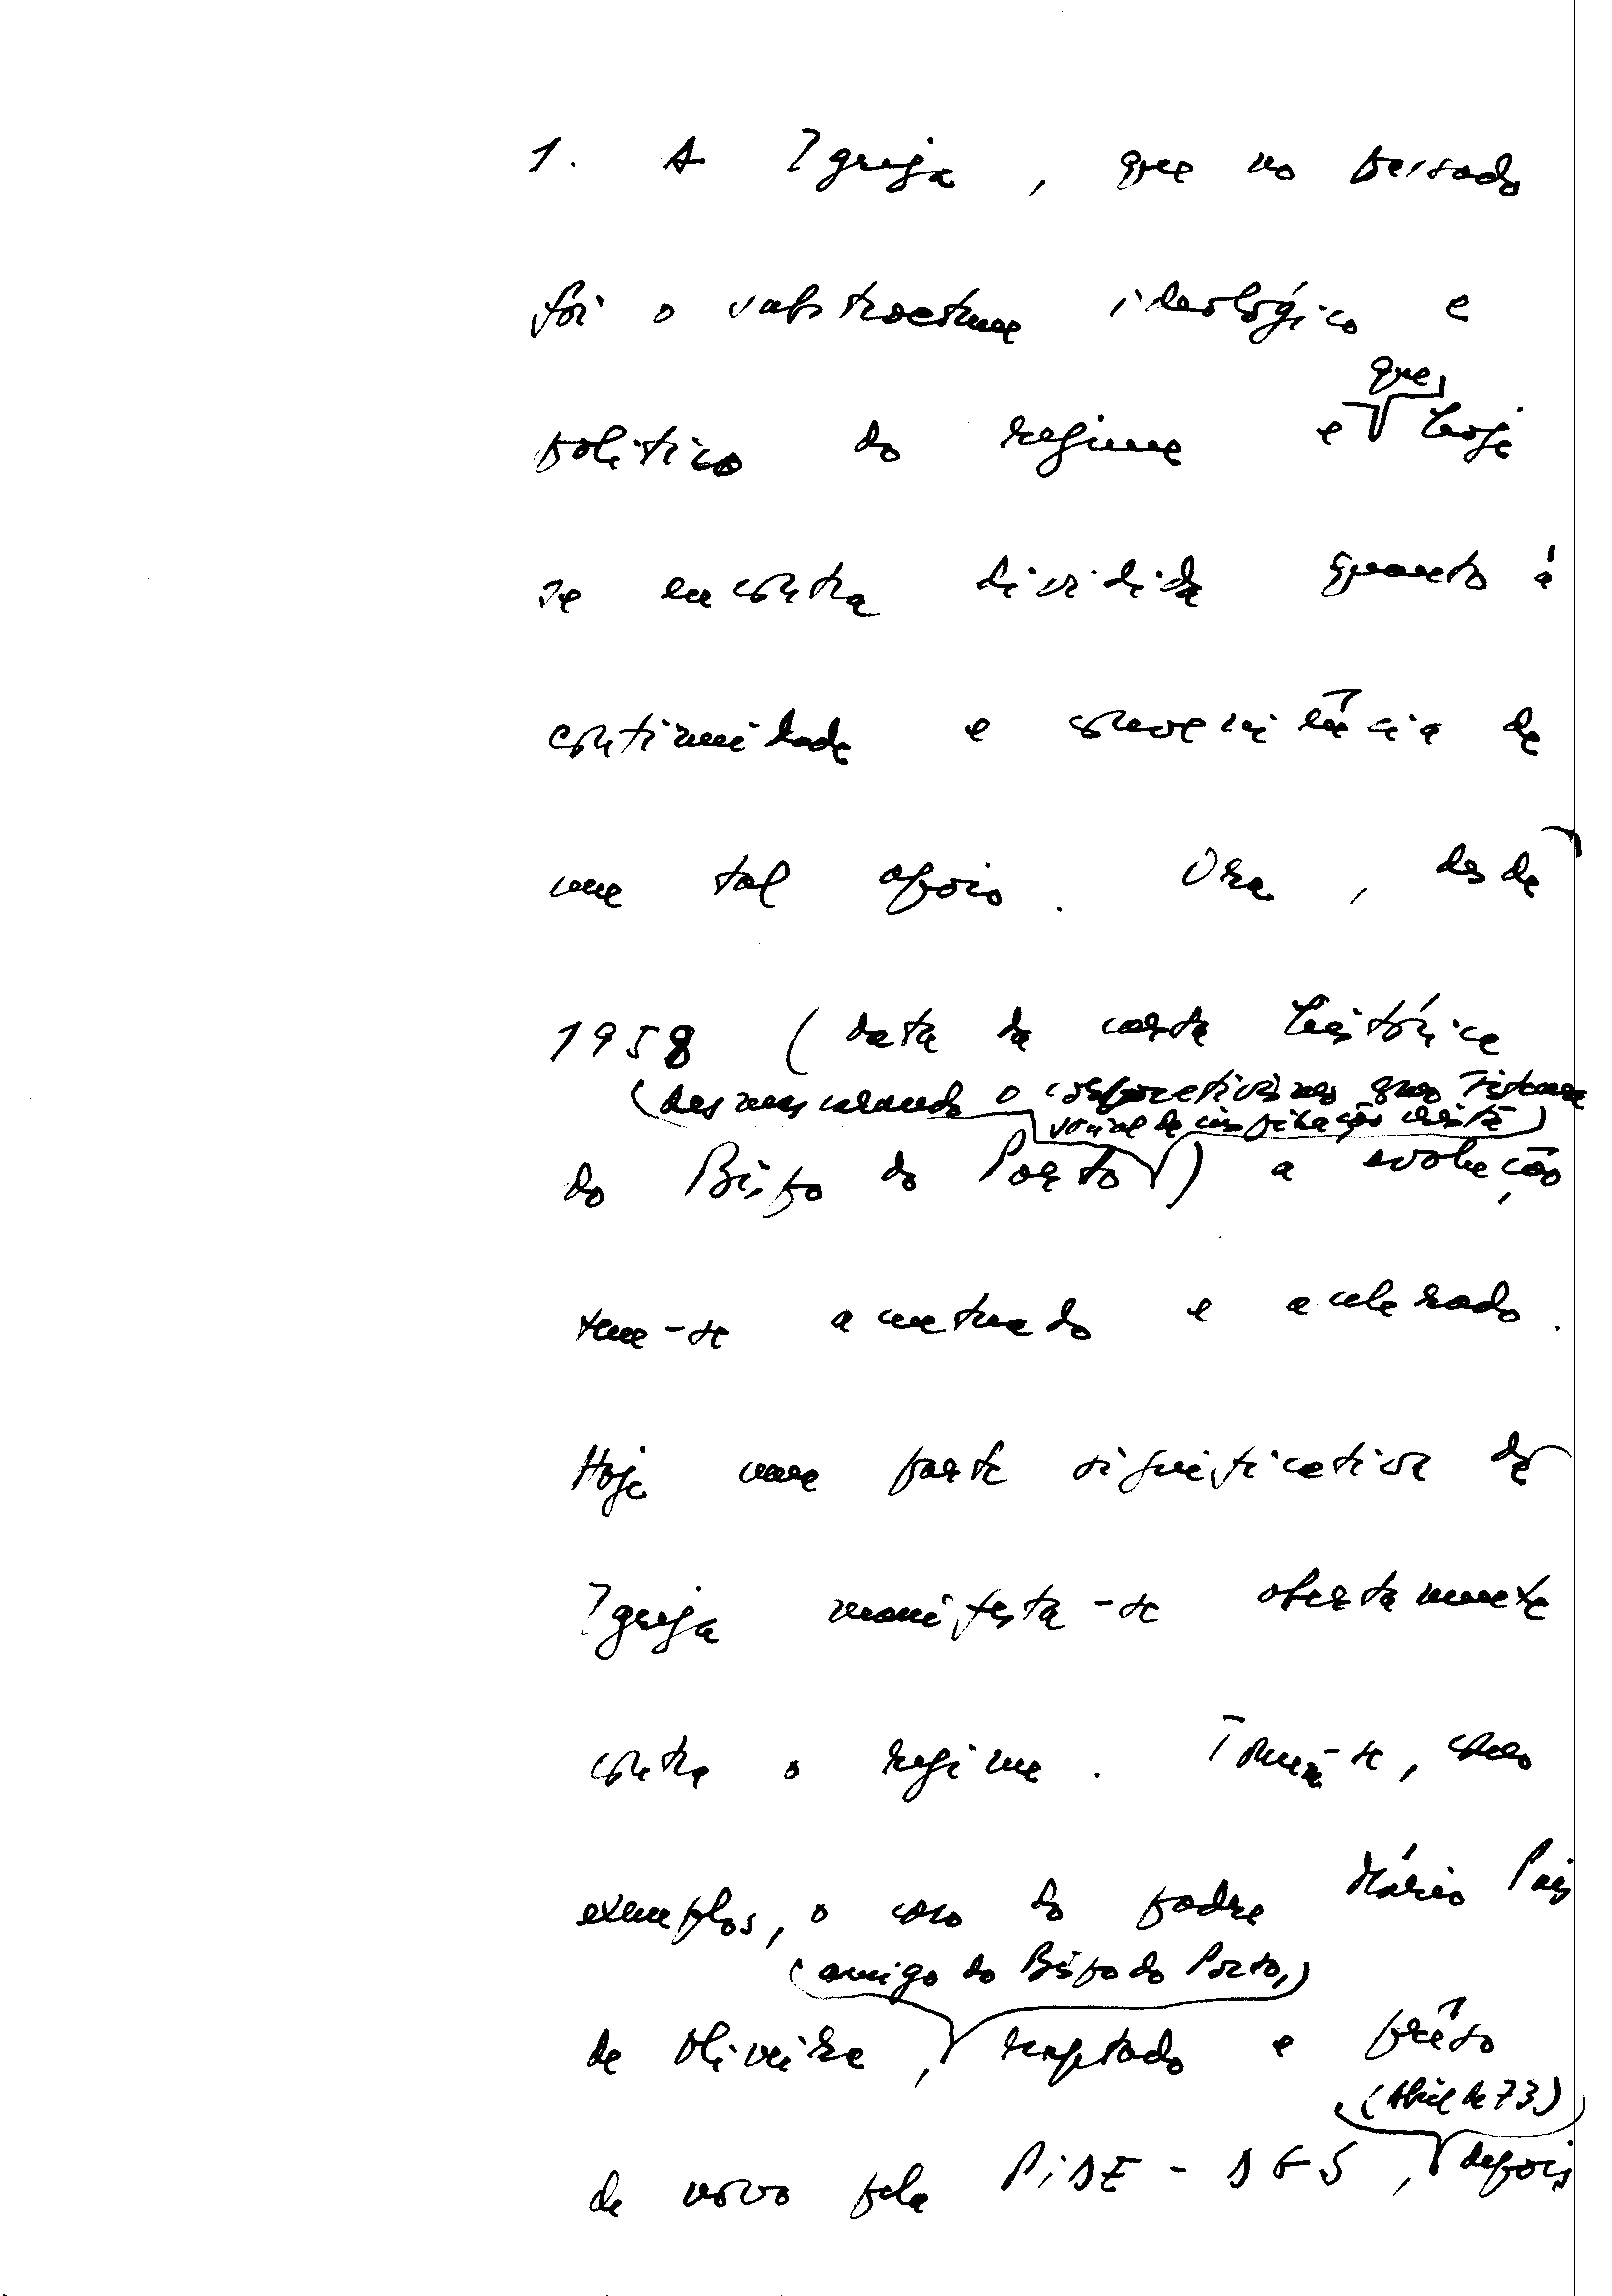 1. A Igreja, que no passado
foi o substractum ideológico e
que,
político do regime e hoje
se encontra dividida quanto à
continuidade e conveniência de
um tal apoio. Ora, desde
1958 (data da carta histórica
(desmascarando o corporativismo como sistema
social de inspiração cristã)
do Bispo do Porto) a evolução
tem-se acentuado e acelerado.
Hoje uma parte significativa da
Igreja manifesta-se abertamente
contra o regime. Tome-se, como
exemplos, o caso do padre Mário Pais
(amigo do Bispo do Porto,)
de Oliveira, raptado e prêso
(Abril de 73)
de novo pela PIDE-DGS, depois